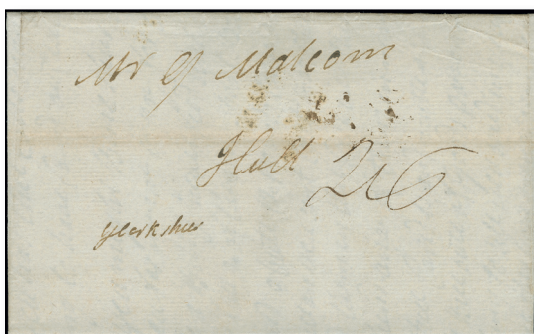 Mr G Malcom
Hull 2/6
Yeorkshier